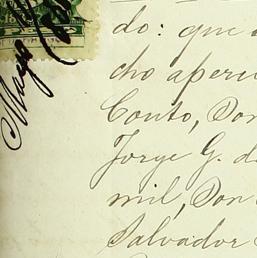 do: que
cho aperci
Couto, Don
Jorge G. d
mil, Don
Salvador